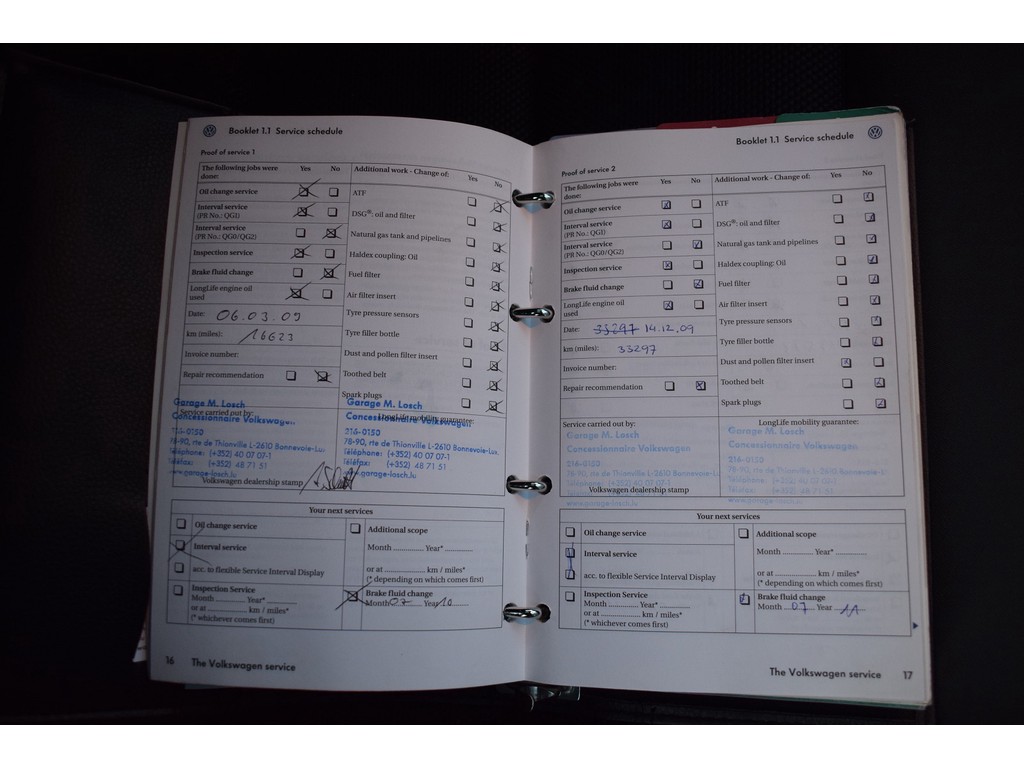 Booklet 1.1 Service schedule
Proof of service 1
The following jobs were done: Yes No
Oil change service
Interval service
(PR No.: QG1)
Interval service
(PR No.: QG0/QG2)
Inspection service
Brake fluid change
LongLife engine oil
used
Date: 06.03.09
km (miles): 16623
Invoice number:
Repair recommendation
Additional work - Change of: Yes No
ATF
DSG®: oil and filter
Natural gas tank and pipelines
Haldex coupling: Oil
Fuel filter
Air filter insert
Tyre pressure sensors
Tyre filler bottle
Dust and pollen filter insert
Toothed belt
Spark plugs
Service carried out by:
Garage M. Losch
Concessionnaire Volkswagen
216-0150
78-90, rte de Thionville L-2610 Bonnevoie-Lux.
Téléphone: (+352) 40 07 07-1
Téléfax: (+352) 48 71 51
www.garage-losch.lu
Volkswagen dealership stamp
LongLife mobility guarantee:
Garage M. Losch
Concessionnaire Volkswagen
216-0150
78-90, rte de Thionville L-2610 Bonnevoie-Lux.
Téléphone: (+352) 40 07 07-1
Téléfax: (+352) 48 71 51
www.garage-losch.lu
Your next services
Oil change service
Interval service
acc. to flexible Service Interval Display
Inspection Service
Month ............ Year* ............
or at ............ km / miles*
(* whichever comes first)
Additional scope
Month ............ Year* ............
or at ............ km / miles*
(* depending on which comes first)
Brake fluid change
Month 07 Year 10
16 The Volkswagen service
Booklet 1.1 Service schedule
Proof of service 2
The following jobs were done: Yes No
Oil change service
Interval service
(PR No.: QG1)
Interval service
(PR No.: QG0/QG2)
Inspection service
Brake fluid change
LongLife engine oil
used
Date: 33297 14.12.09
km (miles): 33297
Invoice number:
Repair recommendation
Additional work - Change of: Yes No
ATF
DSG®: oil and filter
Natural gas tank and pipelines
Haldex coupling: Oil
Fuel filter
Air filter insert
Tyre pressure sensors
Tyre filler bottle
Dust and pollen filter insert
Toothed belt
Spark plugs
Service carried out by:
Garage M. Losch
Concessionnaire Volkswagen
216-0150
78-90, rte de Thionville L-2610 Bonnevoie-Lux
Téléphone: (+352) 40 07 07-1
Téléfax: (+352) 48 71 51
www.garage-losch.lu
Volkswagen dealership stamp
LongLife mobility guarantee:
Garage M. Losch
Concessionnaire Volkswagen
216-0150
78-90, rte de Thionville L-2610 Bonnevoie-Lux
Téléphone: (+352) 40 07 07-1
Téléfax: (+352) 48 71 51
www.garage-losch.lu
Your next services
Oil change service
Interval service
acc. to flexible Service Interval Display
Inspection Service
Month ............ Year* ............
or at ............ km / miles*
(* whichever comes first)
Additional scope
Month ............ Year* ............
or at ............ km / miles*
(* depending on which comes first)
Brake fluid change
Month 07 Year 11
The Volkswagen service 17